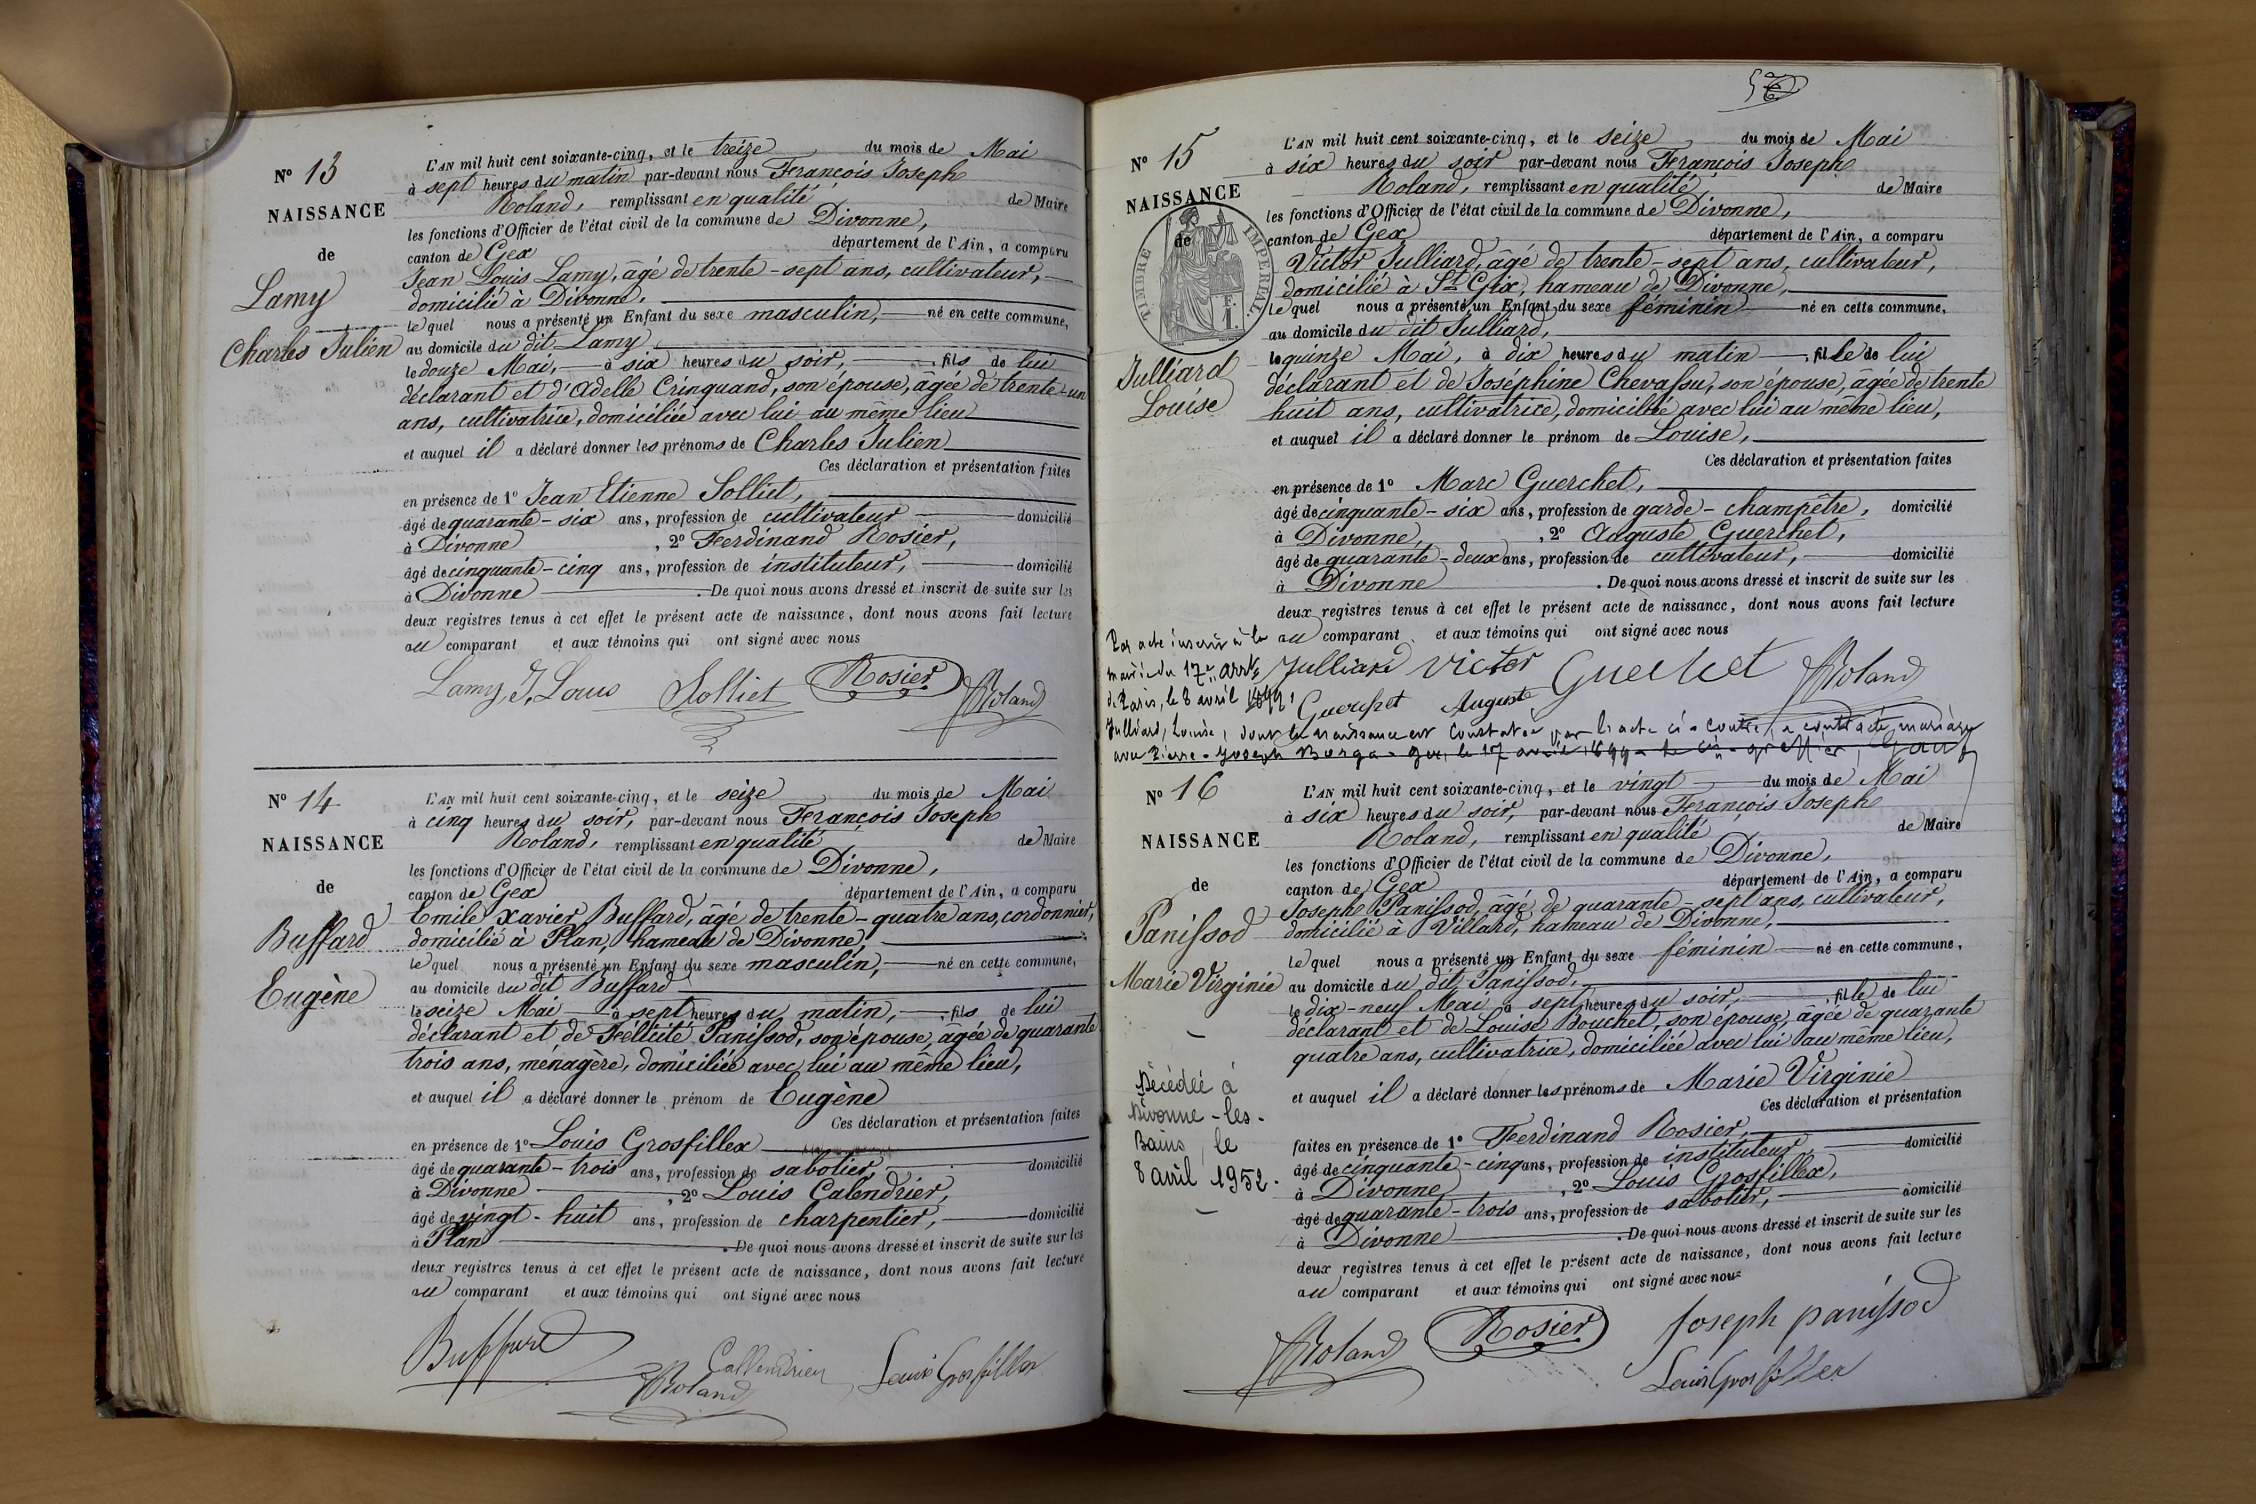 Nº 13
NAISSANCE
de
Lamy
Charles Julien
L'AN mil huit cent soixante-cinq, et le treize du mois de Mai
à sept heures du matin par-devant nous François Joseph
Roland, remplissant en qualité de Maire
les fonctions d'Officier de l'état civil de la commune de Divonne,
canton de Gex département de l'Ain, a comparu
Jean Louis Lamy, âgé de trente-sept ans, cultivateur,
domicilié à Divonne,
lequel nous a présenté un Enfant du sexe masculin, né en cette commune,
au domicile du dit Lamy
le douze Mai, à six heures du soir, fils de lui
déclarant et d'Adelle Crinquand, son épouse, âgée de trente-un
ans, cultivatrice, domiciliée avec lui au même lieu
et auquel il a déclaré donner les prénoms de Charles Julien
Ces déclaration et présentation faites
en présence de 1º Jean Etienne Solliet,
âgé de quarante-six ans, profession de cultivateur domicilié
à Divonne, 2º Ferdinand Rosier,
âgé de cinquante-cinq ans, profession de instituteur, domicilié
à Divonne. De quoi nous avons dressé et inscrit de suite sur les
deux registres tenus à cet effet le présent acte de naissance, dont nous avons fait lecture
au comparant et aux témoins qui ont signé avec nous
Lamy J. Louis Solliet Rosier Roland
Nº 14
NAISSANCE
de
Buffard
Eugène
L'AN mil huit cent soixante-cinq, et le seize du mois de Mai
à cinq heures du soir, par-devant nous François Joseph
Roland, remplissant en qualité de Maire
les fonctions d'Officier de l'état civil de la commune de Divonne,
canton de Gex département de l'Ain, a comparu
Emile Xavier Buffard, âgé de trente-quatre ans, cordonnier,
domicilié à Plan, hameau de Divonne,
lequel nous a présenté un Enfant du sexe masculin, né en cette commune,
au domicile du dit Buffard
le seize Mai à sept heures du matin, fils de lui
déclarant et de Félicité Panissod, son épouse, âgée de quarante
trois ans, ménagère, domiciliée avec lui au même lieu,
et auquel il a déclaré donner le prénom de Eugène
Ces déclaration et présentation faites
en présence de 1º Louis Grosfillex
âgé de quarante-trois ans, profession de sabotier, domicilié
à Divonne, 2º Louis Calendrier,
âgé de vingt-huit ans, profession de charpentier, domicilié
à Plan. De quoi nous avons dressé et inscrit de suite sur les
deux registres tenus à cet effet le présent acte de naissance, dont nous avons fait lecture
au comparant et aux témoins qui ont signé avec nous
Buffard Roland Callendrier Louis Grosfillex
Nº 15
NAISSANCE
de
TIMBRE IMPERIAL
Julliard
Louise
L'AN mil huit cent soixante-cinq, et le seize du mois de Mai
à six heures du soir par-devant nous François Joseph
Roland, remplissant en qualité de Maire
les fonctions d'Officier de l'état civil de la commune de Divonne,
canton de Gex département de l'Ain, a comparu
Victor Julliard, âgé de trente-sept ans, cultivateur,
domicilié à St Gix, hameau de Divonne,
lequel nous a présenté un Enfant du sexe féminin né en cette commune,
au domicile du dit Julliard,
le quinze Mai, à dix heures du matin, fille de lui
déclarant et de Joséphine Chevassu, son épouse, âgée de trente
huit ans, cultivatrice, domiciliée avec lui au même lieu,
et auquel il a déclaré donner le prénom de Louise,
Ces déclaration et présentation faites
en présence de 1º Marc Guerchet,
âgé de cinquante-six ans, profession de garde-champêtre, domicilié
à Divonne, 2º Auguste Guerchet,
âgé de quarante-deux ans, profession de cultivateur, domicilié
à Divonne. De quoi nous avons dressé et inscrit de suite sur les
deux registres tenus à cet effet le présent acte de naissance, dont nous avons fait lecture
au comparant et aux témoins qui ont signé avec nous
Julliard Victor Guerchet Roland
Guerchet Auguste
Par acte inscrit à la
mairie du 17e arrt
de Paris, le 8 avril 1899,
Julliard, Louise, dont la naissance est constatée par l'acte ci-contre, a contracté mariage
avec Pierre-Joseph Borga. Gex, le 17 avril 1899. Le greffier,
Nº 16
NAISSANCE
de
Panissod
Marie Virginie
Décédée à
Divonne-les-
Bains, le
8 avril 1952.
L'AN mil huit cent soixante-cinq, et le vingt du mois de Mai
à six heures du soir, par-devant nous François Joseph
Roland, remplissant en qualité de Maire
les fonctions d'Officier de l'état civil de la commune de Divonne,
canton de Gex département de l'Ain, a comparu
Joseph Panissod, âgé de quarante-sept ans, cultivateur,
domicilié à Villard, hameau de Divonne,
lequel nous a présenté un Enfant du sexe féminin né en cette commune,
au domicile du dit Panissod,
le dix-neuf Mai à sept heures du soir, fille de lui
déclarant et de Louise Bouchet, son épouse, âgée de quarante
quatre ans, cultivatrice, domiciliée avec lui au même lieu,
et auquel il a déclaré donner les prénoms de Marie Virginie
Ces déclaration et présentation
faites en présence de 1º Ferdinand Rosier,
âgé de cinquante-cinq ans, profession de instituteur domicilié
à Divonne, 2º Louis Grosfillex,
âgé de quarante-trois ans, profession de sabotier, domicilié
à Divonne. De quoi nous avons dressé et inscrit de suite sur les
deux registres tenus à cet effet le présent acte de naissance, dont nous avons fait lecture
au comparant et aux témoins qui ont signé avec nous
Roland Rosier Joseph panissod
Louis Grosfillex